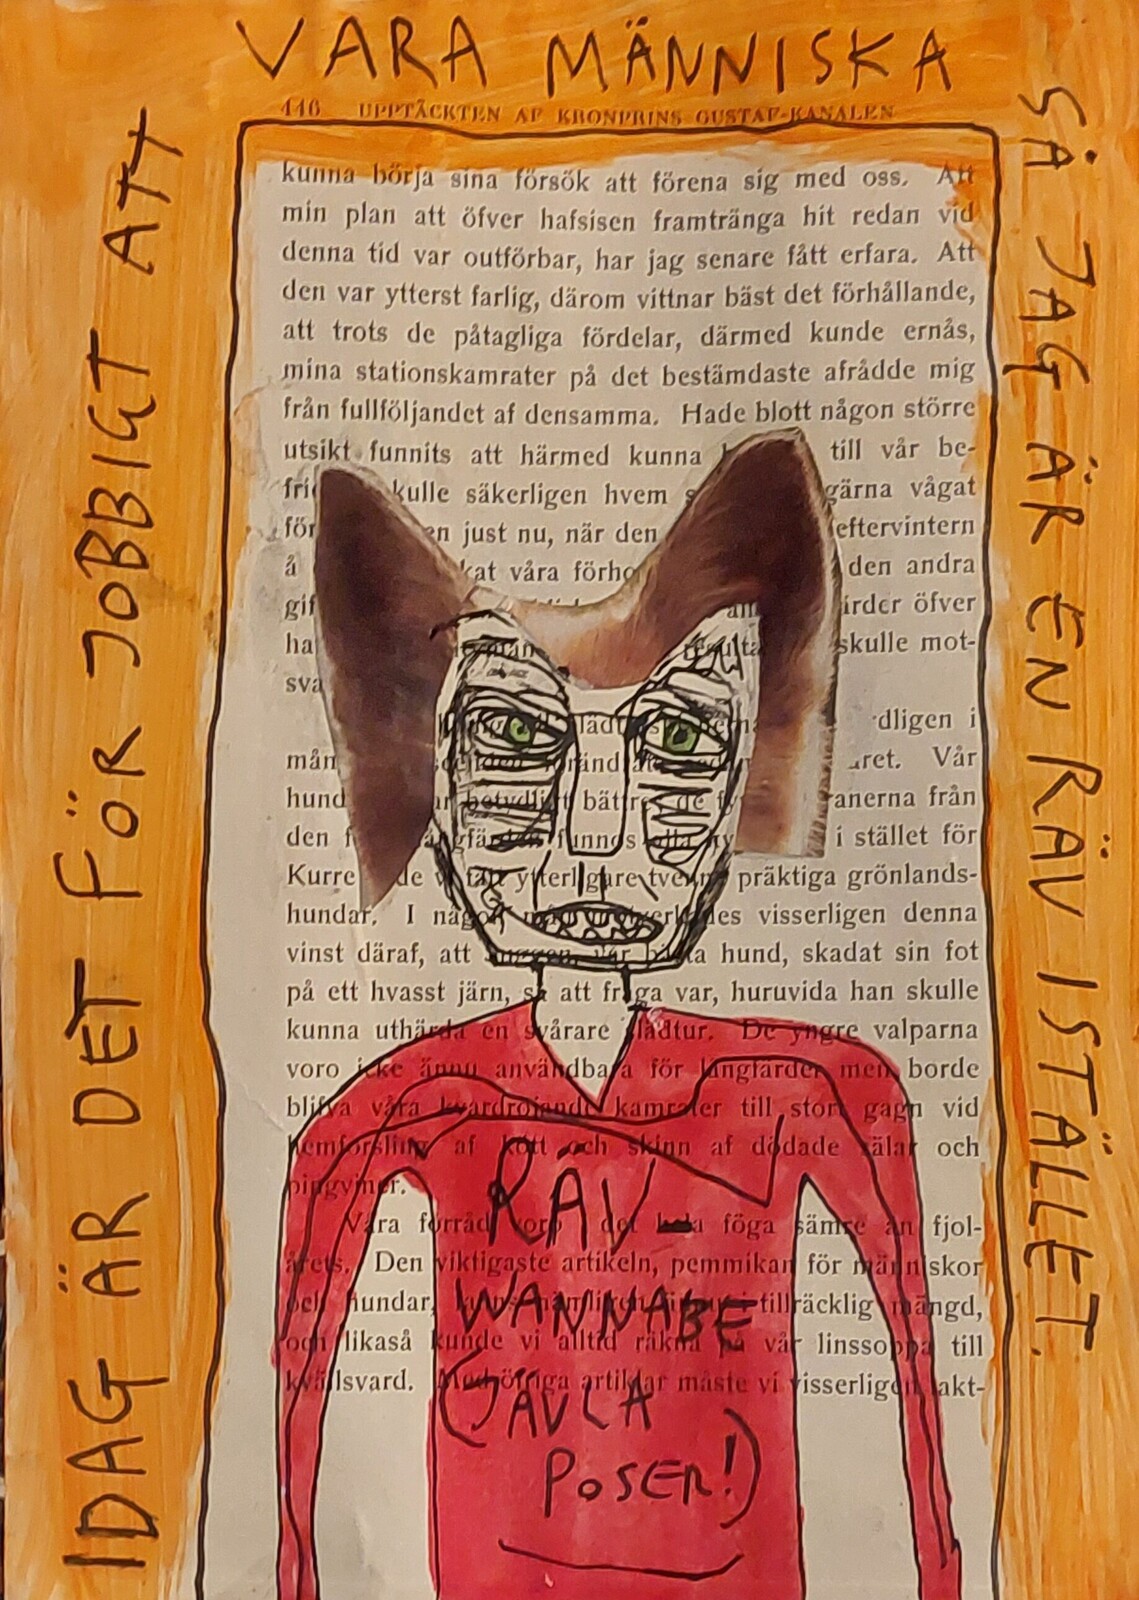 IDAG ÄR DET FÖR JOBBIGT ATT
VARA MÄNNISKA
SÅ JAG ÄR EN RÄV ISTÄLLET.
446 UPPTÄCKTEN AF KRONPRINS GUSTAF-KANALEN
kunna börja sina försök att förena sig med oss. Att
min plan att öfver hafsisen framtränga hit redan vid
denna tid var outförbar, har jag senare fått erfara. Att
den var ytterst farlig, därom vittnar bäst det förhållande,
att trots de påtagliga fördelar, därmed kunde ernås,
mina stationskamrater på det bestämdaste afrådde mig
från fullföljandet af densamma. Hade blott någon större
utsikt funnits att härmed kunna till vår be-
kulle säkerligen hvem gärna vågat
för en just nu, när den eftervintern
å kat våra förho den andra
gif irder öfver
ha skulle mot-
sva
dligen i
mån aret. Vår
hund betydligt bättre de anerna från
den funnos i stället för
Kurre de ytterligare tvenne präktiga grönlands-
hundar. I någon des visserligen denna
vinst däraf, att vår bästa hund, skadat sin fot
på ett hvasst järn, så att fråga var, huruvida han skulle
kunna uthärda en svårare slädtur. De yngre valparna
voro icke ännu användbara för långfärder men borde
blifva våra kvardröjande kamrater till stort gagn vid
hemforsling af kött och skinn af dödade sälar och
pingviner.
Våra förråd voro det hela föga sämre än fjol-
årets. Den viktigaste artikeln, pemmikan för människor
och hundar, fanns nämligen tillräcklig mängd,
och likaså kunde vi alltid räkna på vår linssoppa till
kvällsvard. Med öfriga artiklar måste vi visserligen akt-
RÄV-
WANNABE
(JÄVLA
POSER!)